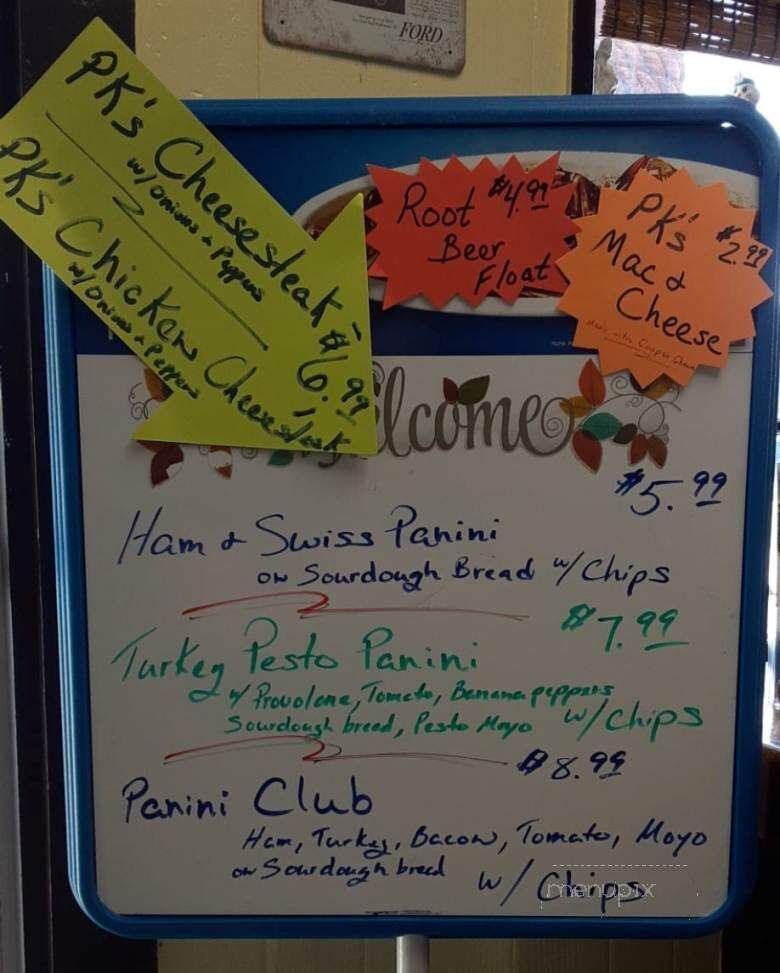 FORD
PK's Cheesesteak
w/onions & Peppers
PK's Chicken Cheesesteak
w/onions & Peppers
$6.99
Root $4.99
Beer
Float
PK's $2.99
Mac &
Cheese
elcome
$5.99
Ham & Swiss Panini
on Sourdough Bread w/ Chips
$7.99
Turkey Pesto Panini
w/ Provolone, Tomato, Banana peppers
Sourdough bread, Pesto Mayo w/ Chips
$8.99
Panini Club
Ham, Turkey, Bacon, Tomato, Mayo
on Sourdough bread
w/ Chips
menupix